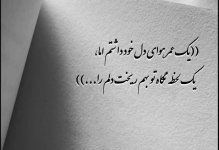 ((یک عمر هوای دل خود داشتم اما،
یک لحظه نگاه تو بهم ریخت دلم را...))